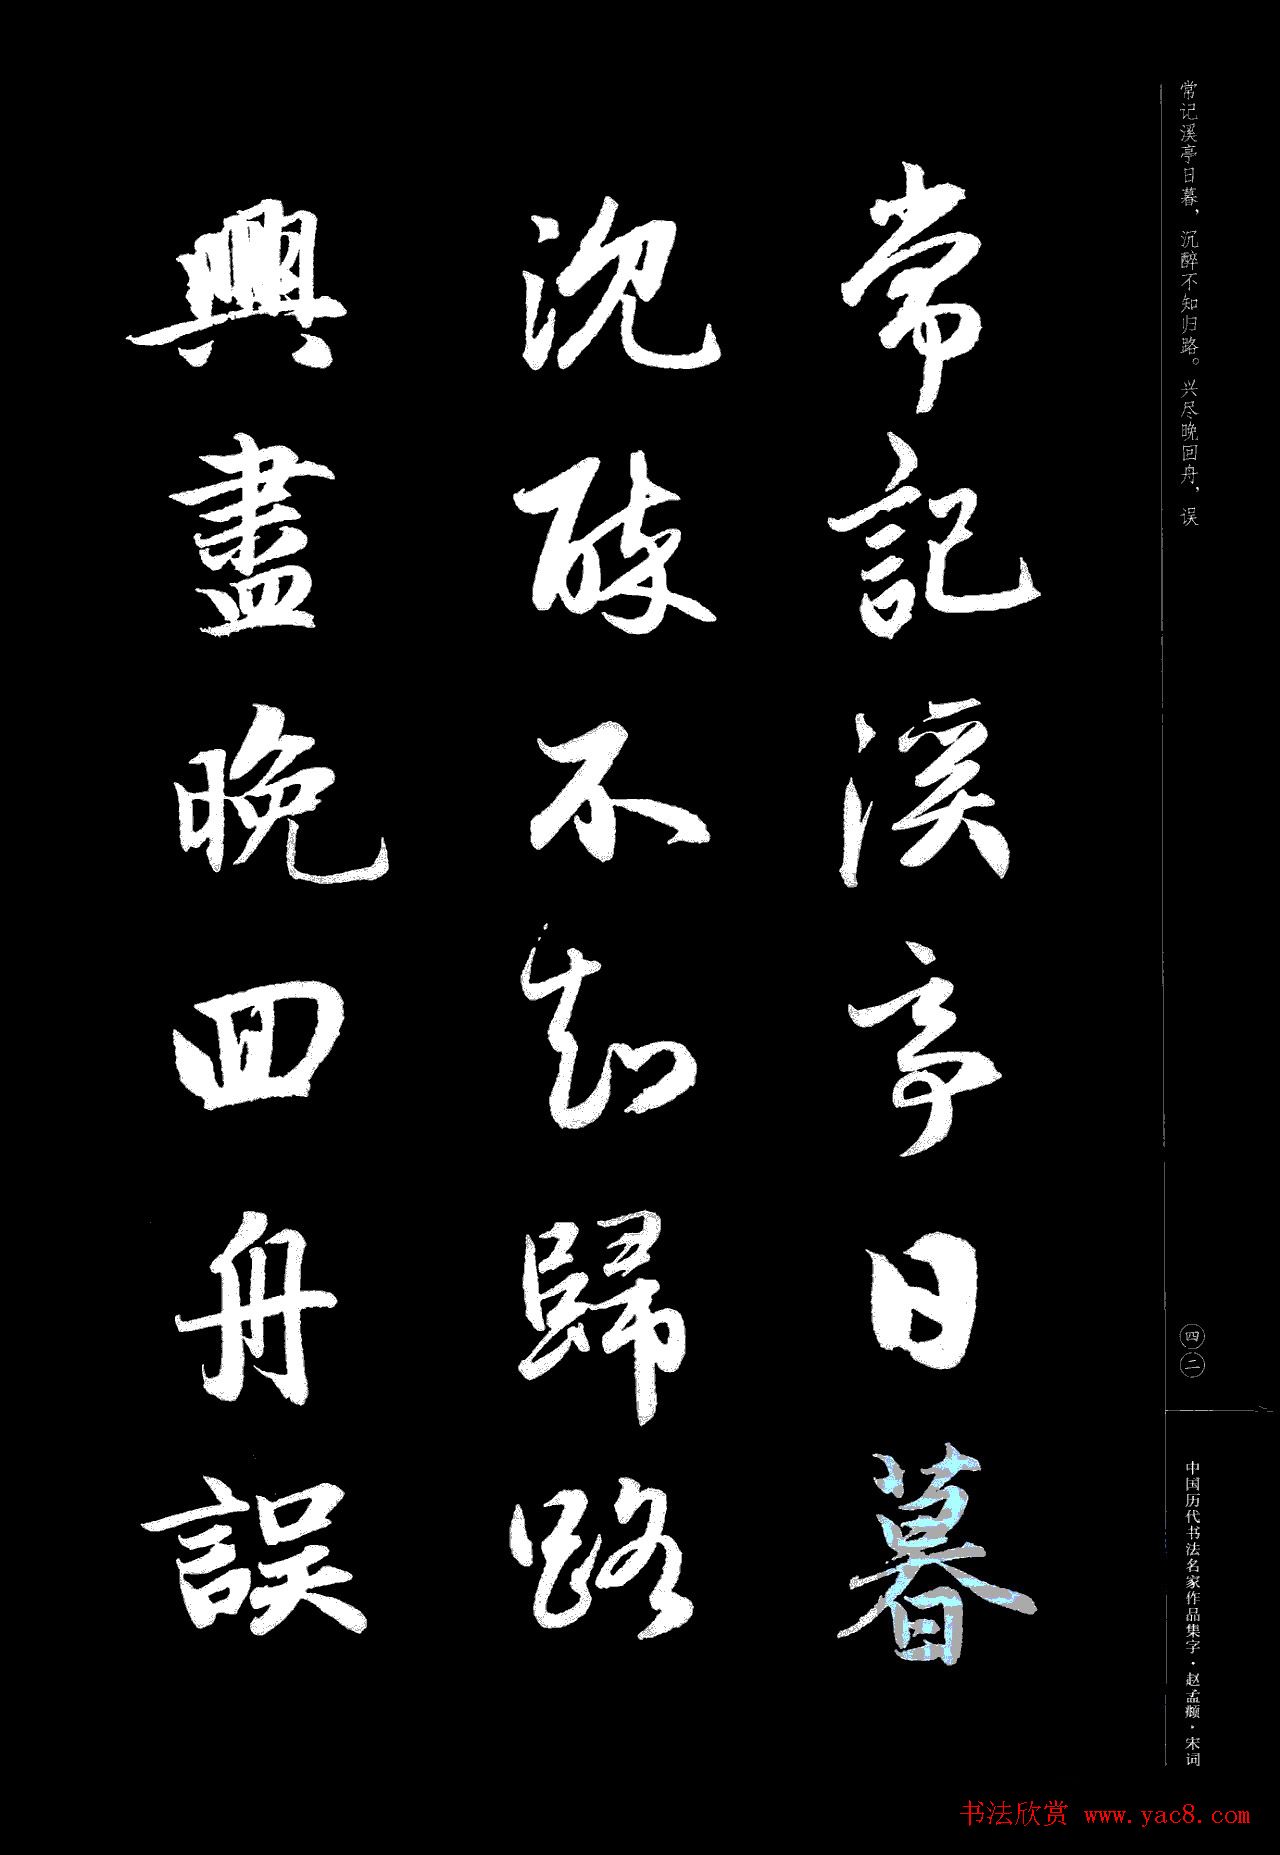 常记溪亭日暮，沉醉不知归路。兴尽晚回舟，误
常記溪亭日暮
沉醉不知歸路
興盡晚回舟誤
四二
中国历代书法名家作品集字·赵孟頫·宋词
书法欣赏 www.yac8.com